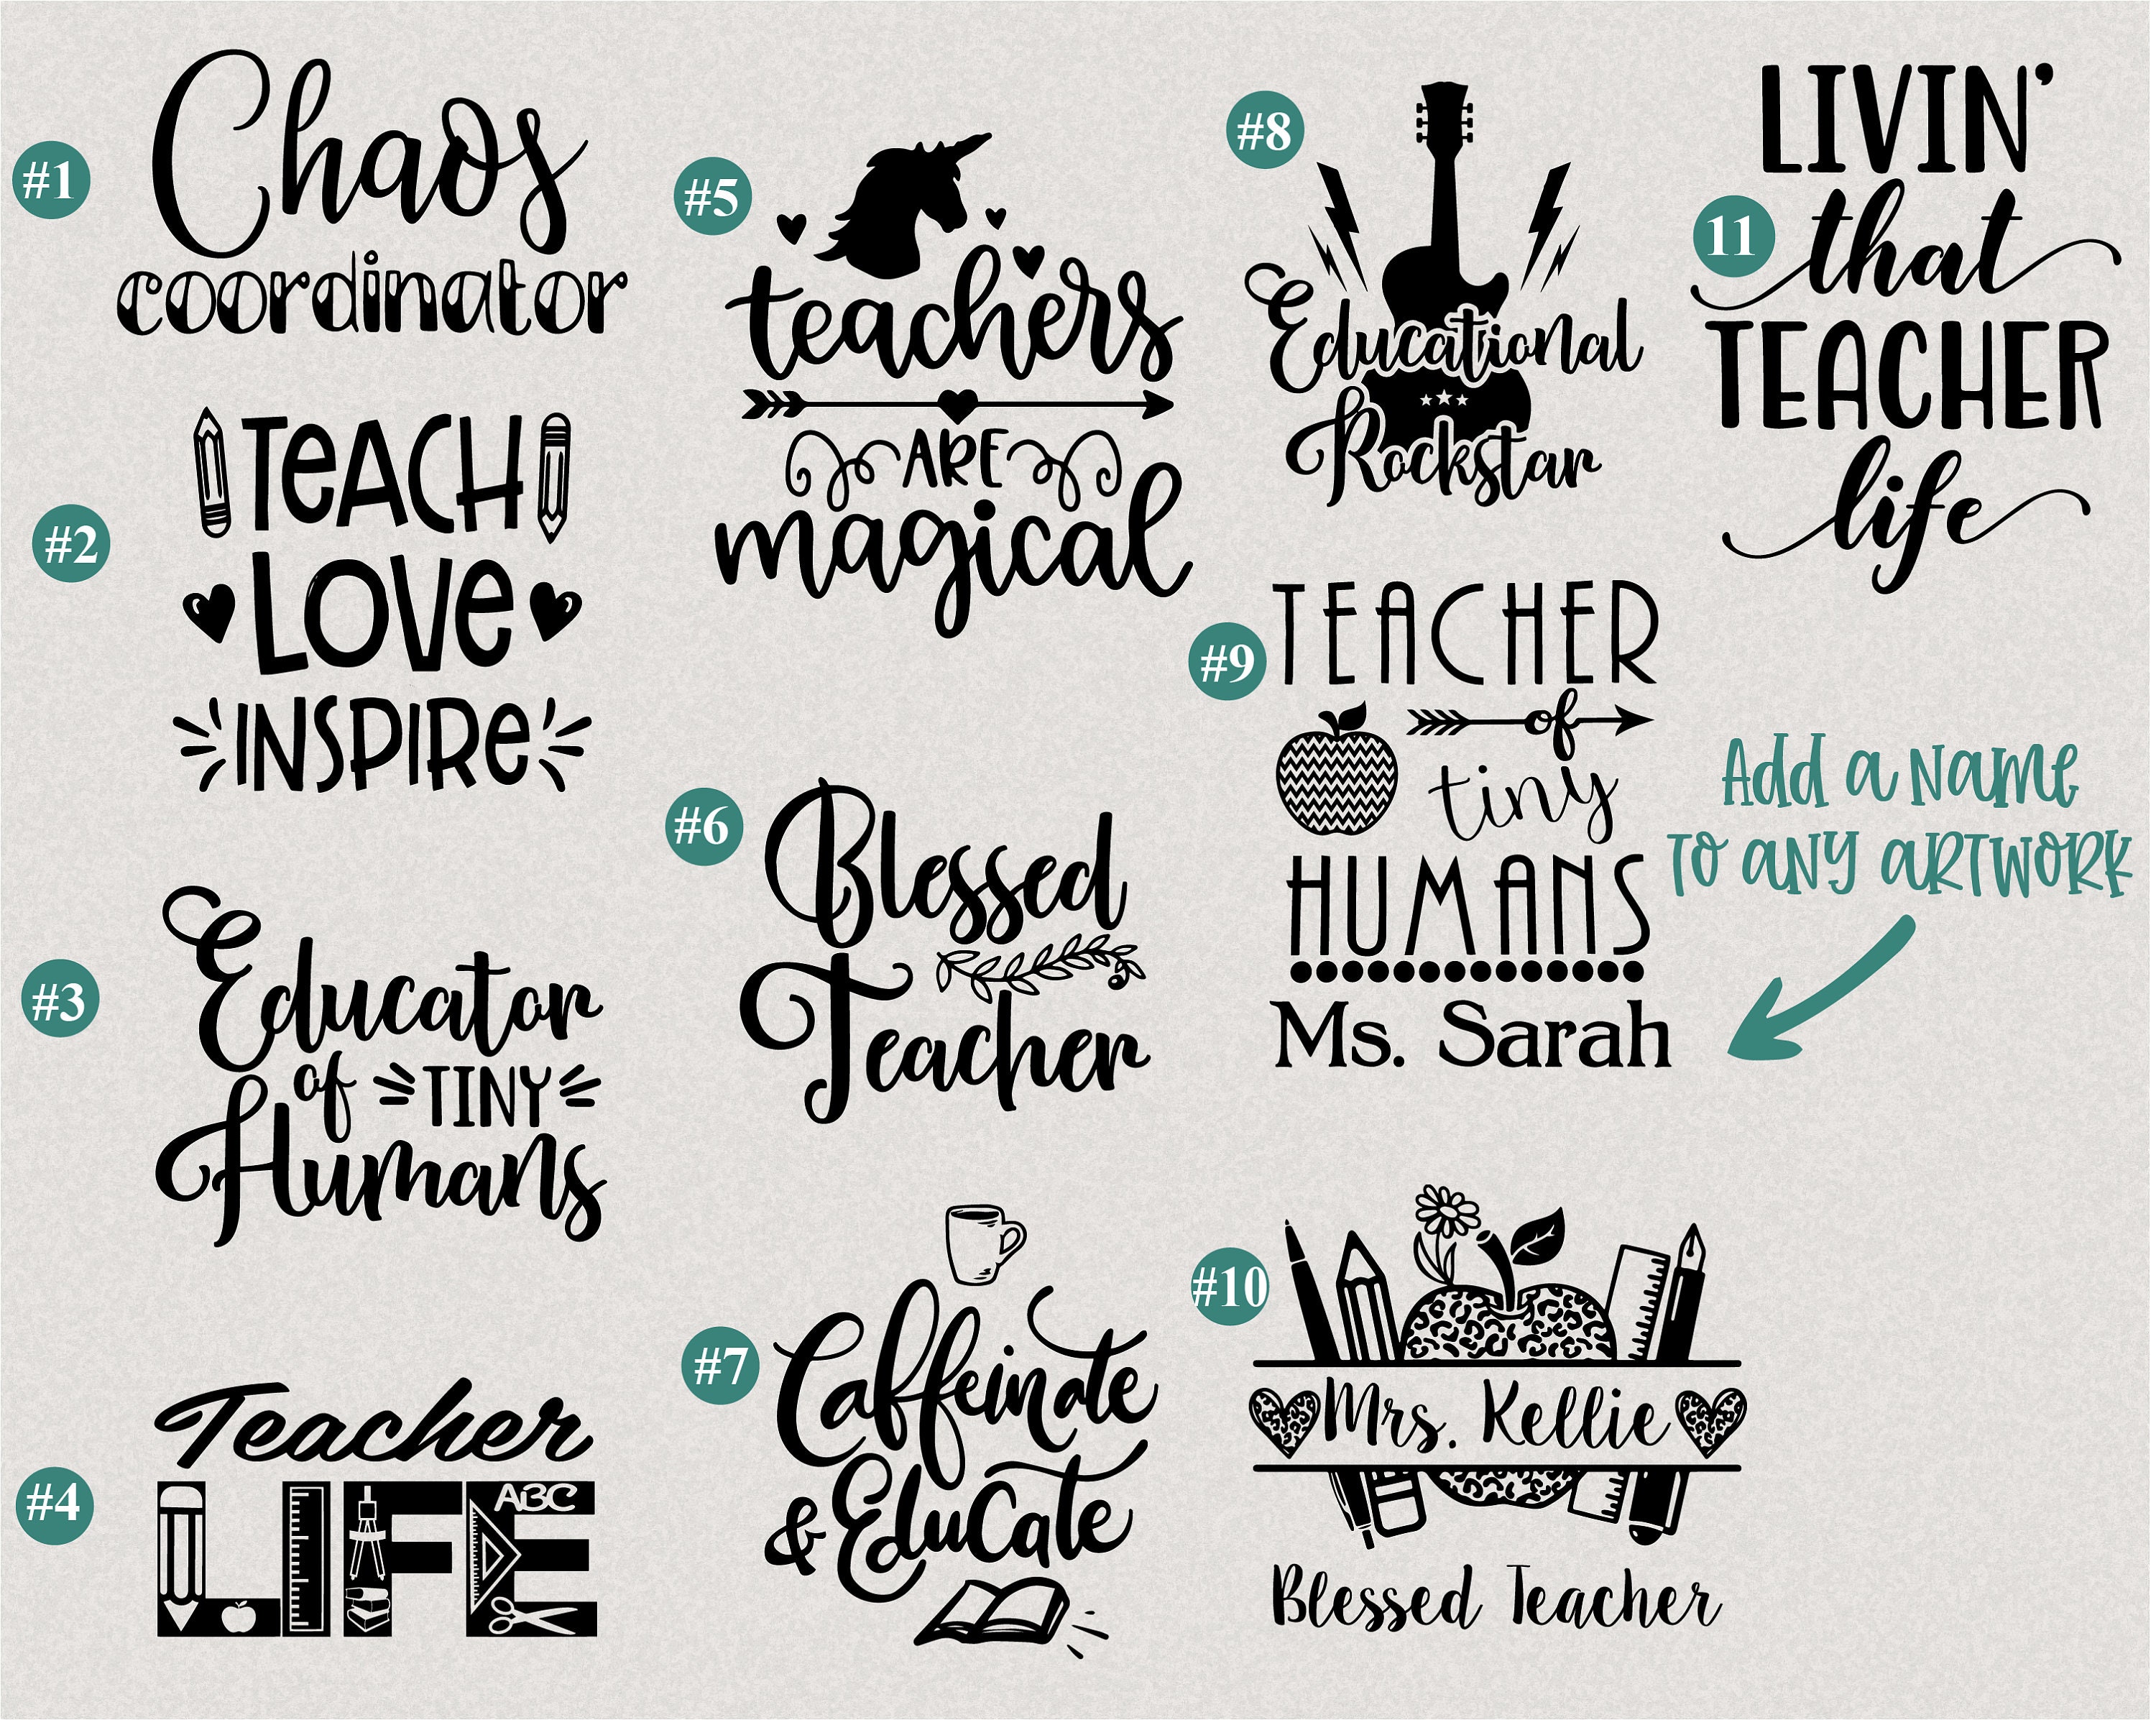 #1
Chaos
coordinator
#2
TeACH
LOVe
INSPIRe
#3
Educator
of TINY
Humans
#4
Teacher
LIFE
ABC
#5
teachers
ARE
magical
#6
Blessed
Teacher
#7
Caffeinate
& Educate
#8
Educational
Rockstar
#9
TEACHER
of
tiny
HUMANS
Ms. Sarah
Add a Name
to any artwork
#10
Mrs. Kellie
Blessed Teacher
11
LIVIN'
that
TEACHER
life